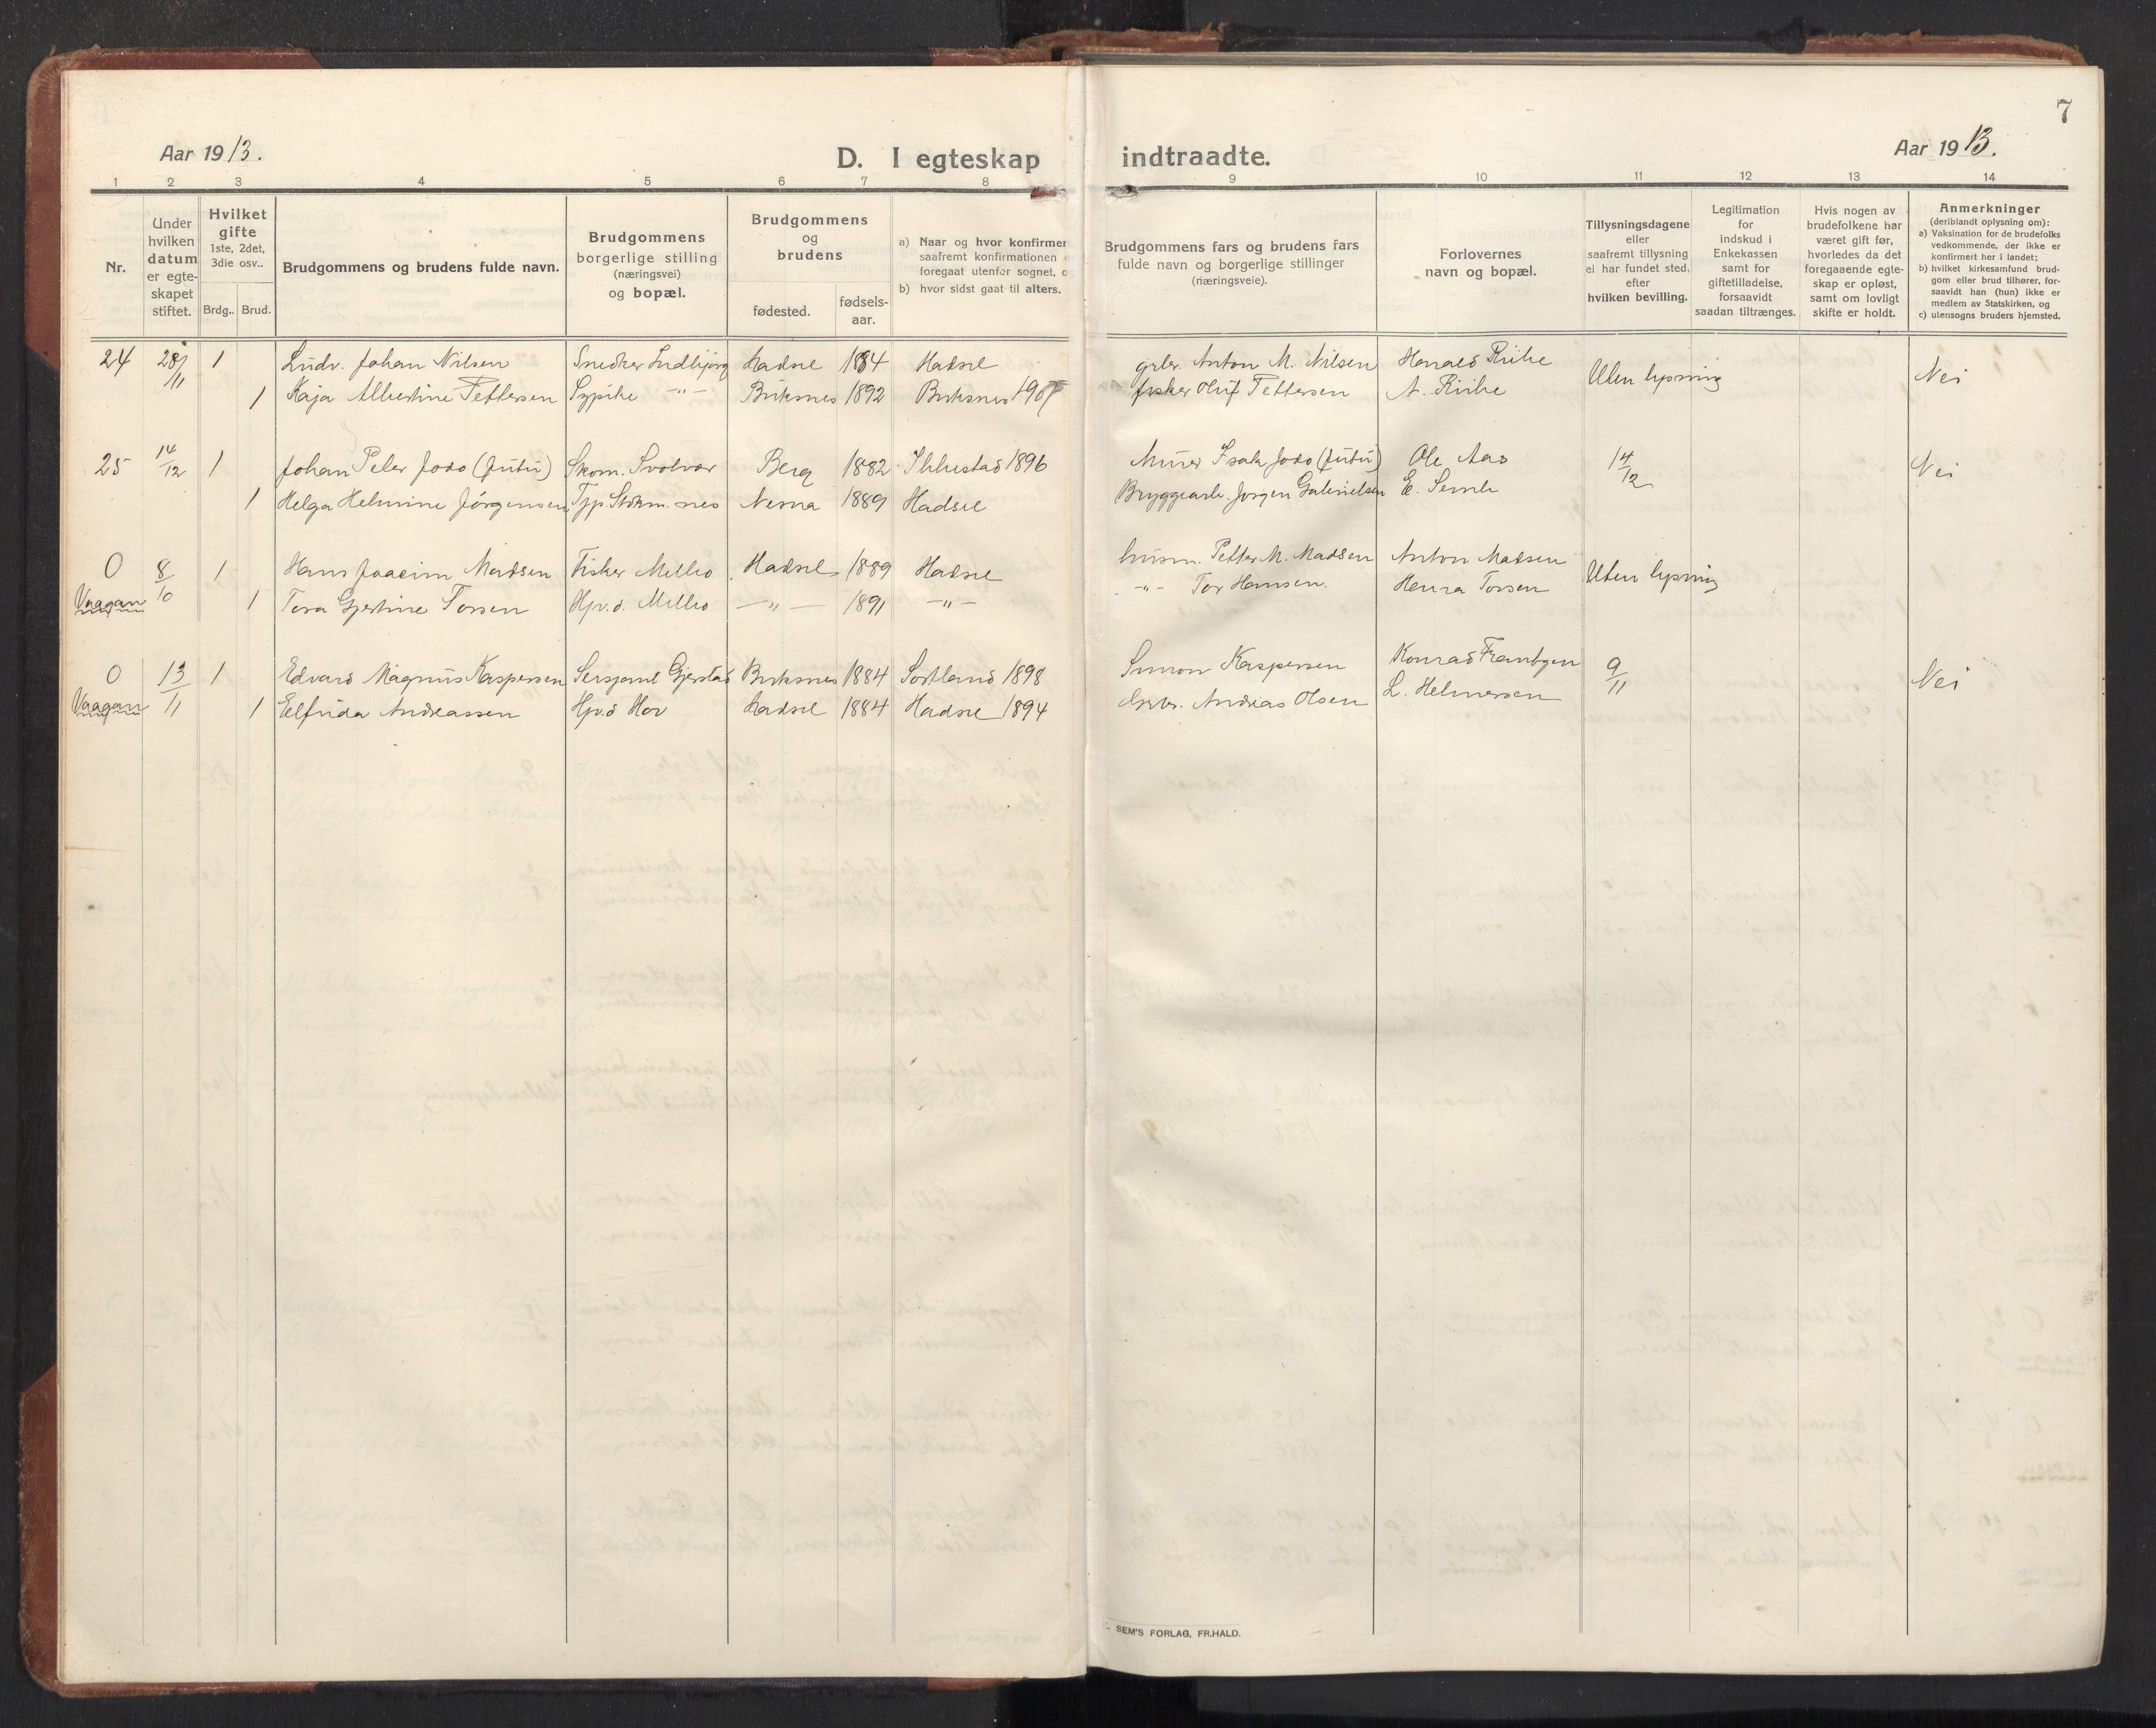 7
Aar 1913.
D. I egteskap indtraadte.
Aar 1913.
1 2 3 4 5 6 7 8 9 10 11 12 13 14
Nr.
Under
hvilken
datum
er egte-
skapet
stiftet.
Hvilket
gifte
1ste, 2det,
3die osv..
Brdg.. Brud.
Brudgommens og brudens fulde navn.
Brudgommens
borgerlige stilling
(næringsvei)
og bopæl.
Brudgommens
og
brudens
fødested.
fødsels-
aar.
a) Naar og hvor konfirmer
saafremt konfirmationen
foregaat utenfor sognet,
b) hvor sidst gaat til alters.
Brudgommens fars og brudens fars
fulde navn og borgerlige stillinger
(næringsveie).
Forlovernes
navn og bopæl.
Tillysningsdagene
eller
saafremt tillysning
ei har fundet sted,
efter
hvilken bevilling.
Legitimation
for
indskud i
Enkekassen
samt for
giftetilladelse,
forsaavidt
saadan tiltrænges.
Hvis nogen av
brudefolkene har
været gift før,
hvorledes da det
foregaaende egte-
skap er opløst,
samt om lovligt
skifte er holdt.
Anmerkninger
(deriblandt oplysning om):
a) Vaksination for de brudefolks
vedkommende, der ikke er
konfirmert her i landet;
b) hvilket kirkesamfund brud-
gom eller brud tilhører, for-
saavidt han (hun) ikke er
medlem av Statskirken, og
c) utensogns bruders hjemsted.
24 28/11 1 Ludv. Johan Nilsen Snedker Indbjörg Hadsel 1884 Hadsel grbr. Anton M. Nilsen Harald Riibe Uten lysning Nei
1 Kaja Albertine Pettersen Sypike -"- Buksnes 1892 Buksnes 1907 fisker Oluf Pettersen A. Riibe
25 14/12 1 Johan Peter Jodo (Jutu) Skom. Svolvær Berg 1882 Ibbestad 1896 Murer Isak Jodo (Jutu) Ole Aas 14/12 Nei
1 Helga Helmine Jörgensen Typ. Stokm.nes Nesna 1889 Hadsel Bryggearb. Jorgen Gabrielsen E. Semb
0 8/10 1 Hans Joacim Madsen Fisker Melbo Hadsel 1889 Hadsel husm. Petter M. Madsen Anton Madsen Uten lysning
Vaagan 1 Tora Gjertine Torsen Hp. d. Melbo -"- 1891 -"- -"- Tor Hansen. Henra Torsen
0 13/11 1 Edvard Magnus Kaspersen Sersjant Gjerstad Buksnes 1884 Sortland 1898 Simon Kaspersen Konrad 9/11 Nei
Vaagan 1 Elfrida Andreassen Hp. d Hov Hadsel 1884 Hadsel 1894 Grbr. Andreas Olsen L. Helmersen
SEM'S FORLAG, FR.HALD.